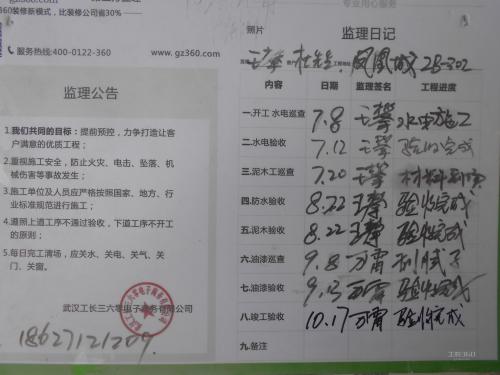 360装修新模式，比装修公司省30%
专业用心服务
服务热线:400-0122-360
www.gz360.com
监理公告
1.我们共同的目标：提前预控，力争打造让客
户满意的优质工程；
2.重视施工安全，防止火灾、电击、坠落、机
械伤害等事故发生；
3.施工单位及人员应严格按照国家、地方、行
业标准规范进行施工；
4.遵照上道工序不通过验收，下道工序不开工
的原则；
5.每日完工清场，应关水、关电、关气、关
门、关窗。
武汉工长三六零电子商务有限公司
18627121209
照片
监理日记
凤凰城 2B-302
内容 日期 监理签名 工程进度
一.开工 水电巡查 7.8 王攀 水电施工
二.水电验收 7.12 王攀 验收完成
三.泥木工巡查 7.20 王攀 材料到场
四.防水验收 8.22 王攀 验收完成
五.泥木验收 8.22 王攀 验收完成
六.油漆巡查 9.8 万雷 刮腻子
七.油漆验收 9.15 万雷 验收完成
八.竣工验收 10.17 万雷 验收完成
九.备注
工长360